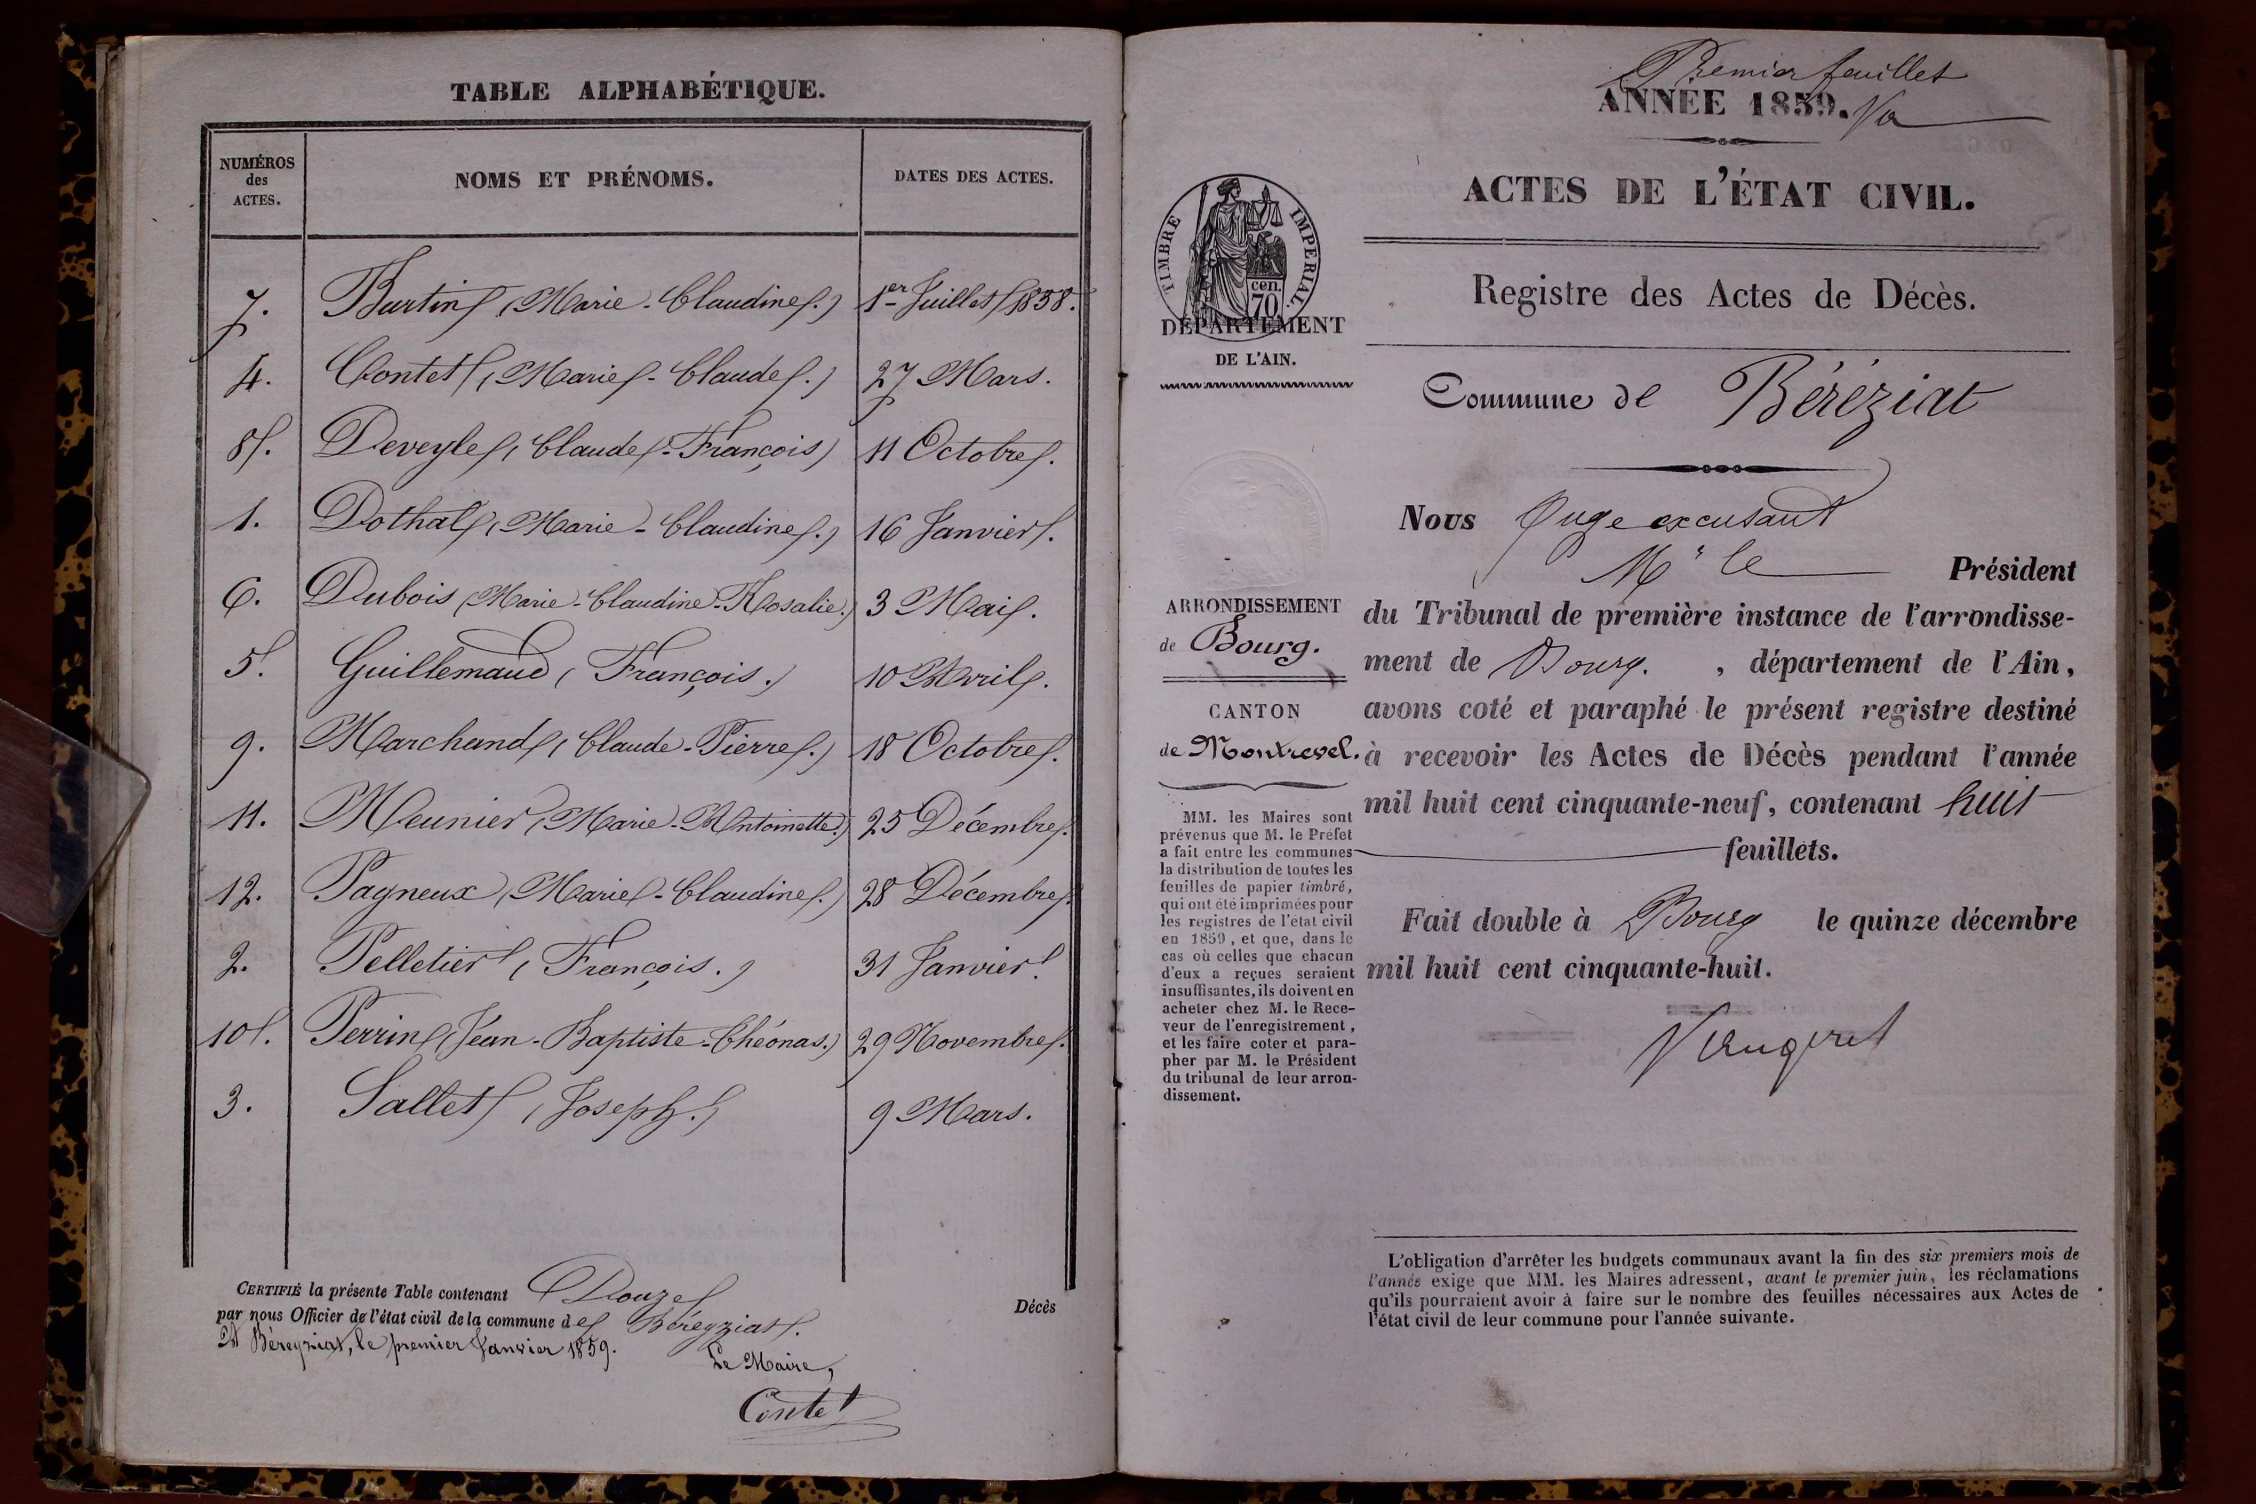 TABLE ALPHABÉTIQUE.
NUMÉROS
des
ACTES.
NOMS ET PRÉNOMS.
DATES DES ACTES.
7. Burtin (Marie-Claudine.) 1er Juillet 1858.
4. Contet (Marie-Claude.) 27 Mars.
8. Deveyle (Claude-François) 11 Octobre.
1. Dothal (Marie-Claudine.) 16 Janvier.
6. Dubois (Marie-Claudine-Rosalie.) 3 Mai.
5. Guillemaud (François.) 10 Avril.
9. Marchand (Claude-Pierre.) 18 Octobre.
11. Meunier (Marie-Antoinette.) 25 Décembre.
12. Pagneux (Marie-Claudine.) 28 Décembre.
2. Pelletier (François.) 31 Janvier.
10. Perrin (Jean-Baptiste-Théonas.) 29 Novembre.
3. Sallet (Joseph.) 9 Mars.
CERTIFIÉ la présente Table contenant Douze Décès
par nous Officier de l'état civil de la commune de Béreyziat.
A Béreyziat, le premier Janvier 1859.
Le Maire,
Contet
Premier feuillet
ANNÉE 1859.
ACTES DE L'ÉTAT CIVIL.
Registre des Actes de Décès.
TIMBRE IMPERIAL.
cen.
70
DÉPARTEMENT
DE L'AIN.
Commune de Béréziat
Nous Juge excusant
Mr le Président
du Tribunal de première instance de l'arrondisse-
ment de Bourg. , département de l'Ain,
avons coté et paraphé le présent registre destiné
à recevoir les Actes de Décès pendant l'année
mil huit cent cinquante-neuf, contenant huit
feuillets.
Fait double à Bourg le quinze décembre
mil huit cent cinquante-huit.
ARRONDISSEMENT
de Bourg.
CANTON
de Montrevel.
MM. les Maires sont
prévenus que M. le Préfet
a fait entre les communes
la distribution de toutes les
feuilles de papier timbré,
qui ont été imprimées pour
les registres de l'état civil
en 1859, et que, dans le
cas où celles que chacun
d'eux a reçues seraient
insuffisantes, ils doivent en
acheter chez M. le Rece-
veur de l'enregistrement,
et les faire coter et para-
pher par M. le Président
du tribunal de leur arron-
dissement.
L'obligation d'arrêter les budgets communaux avant la fin des six premiers mois de
l'année exige que MM. les Maires adressent, avant le premier juin, les réclamations
qu'ils pourraient avoir à faire sur le nombre des feuilles nécessaires aux Actes de
l'état civil de leur commune pour l'année suivante.